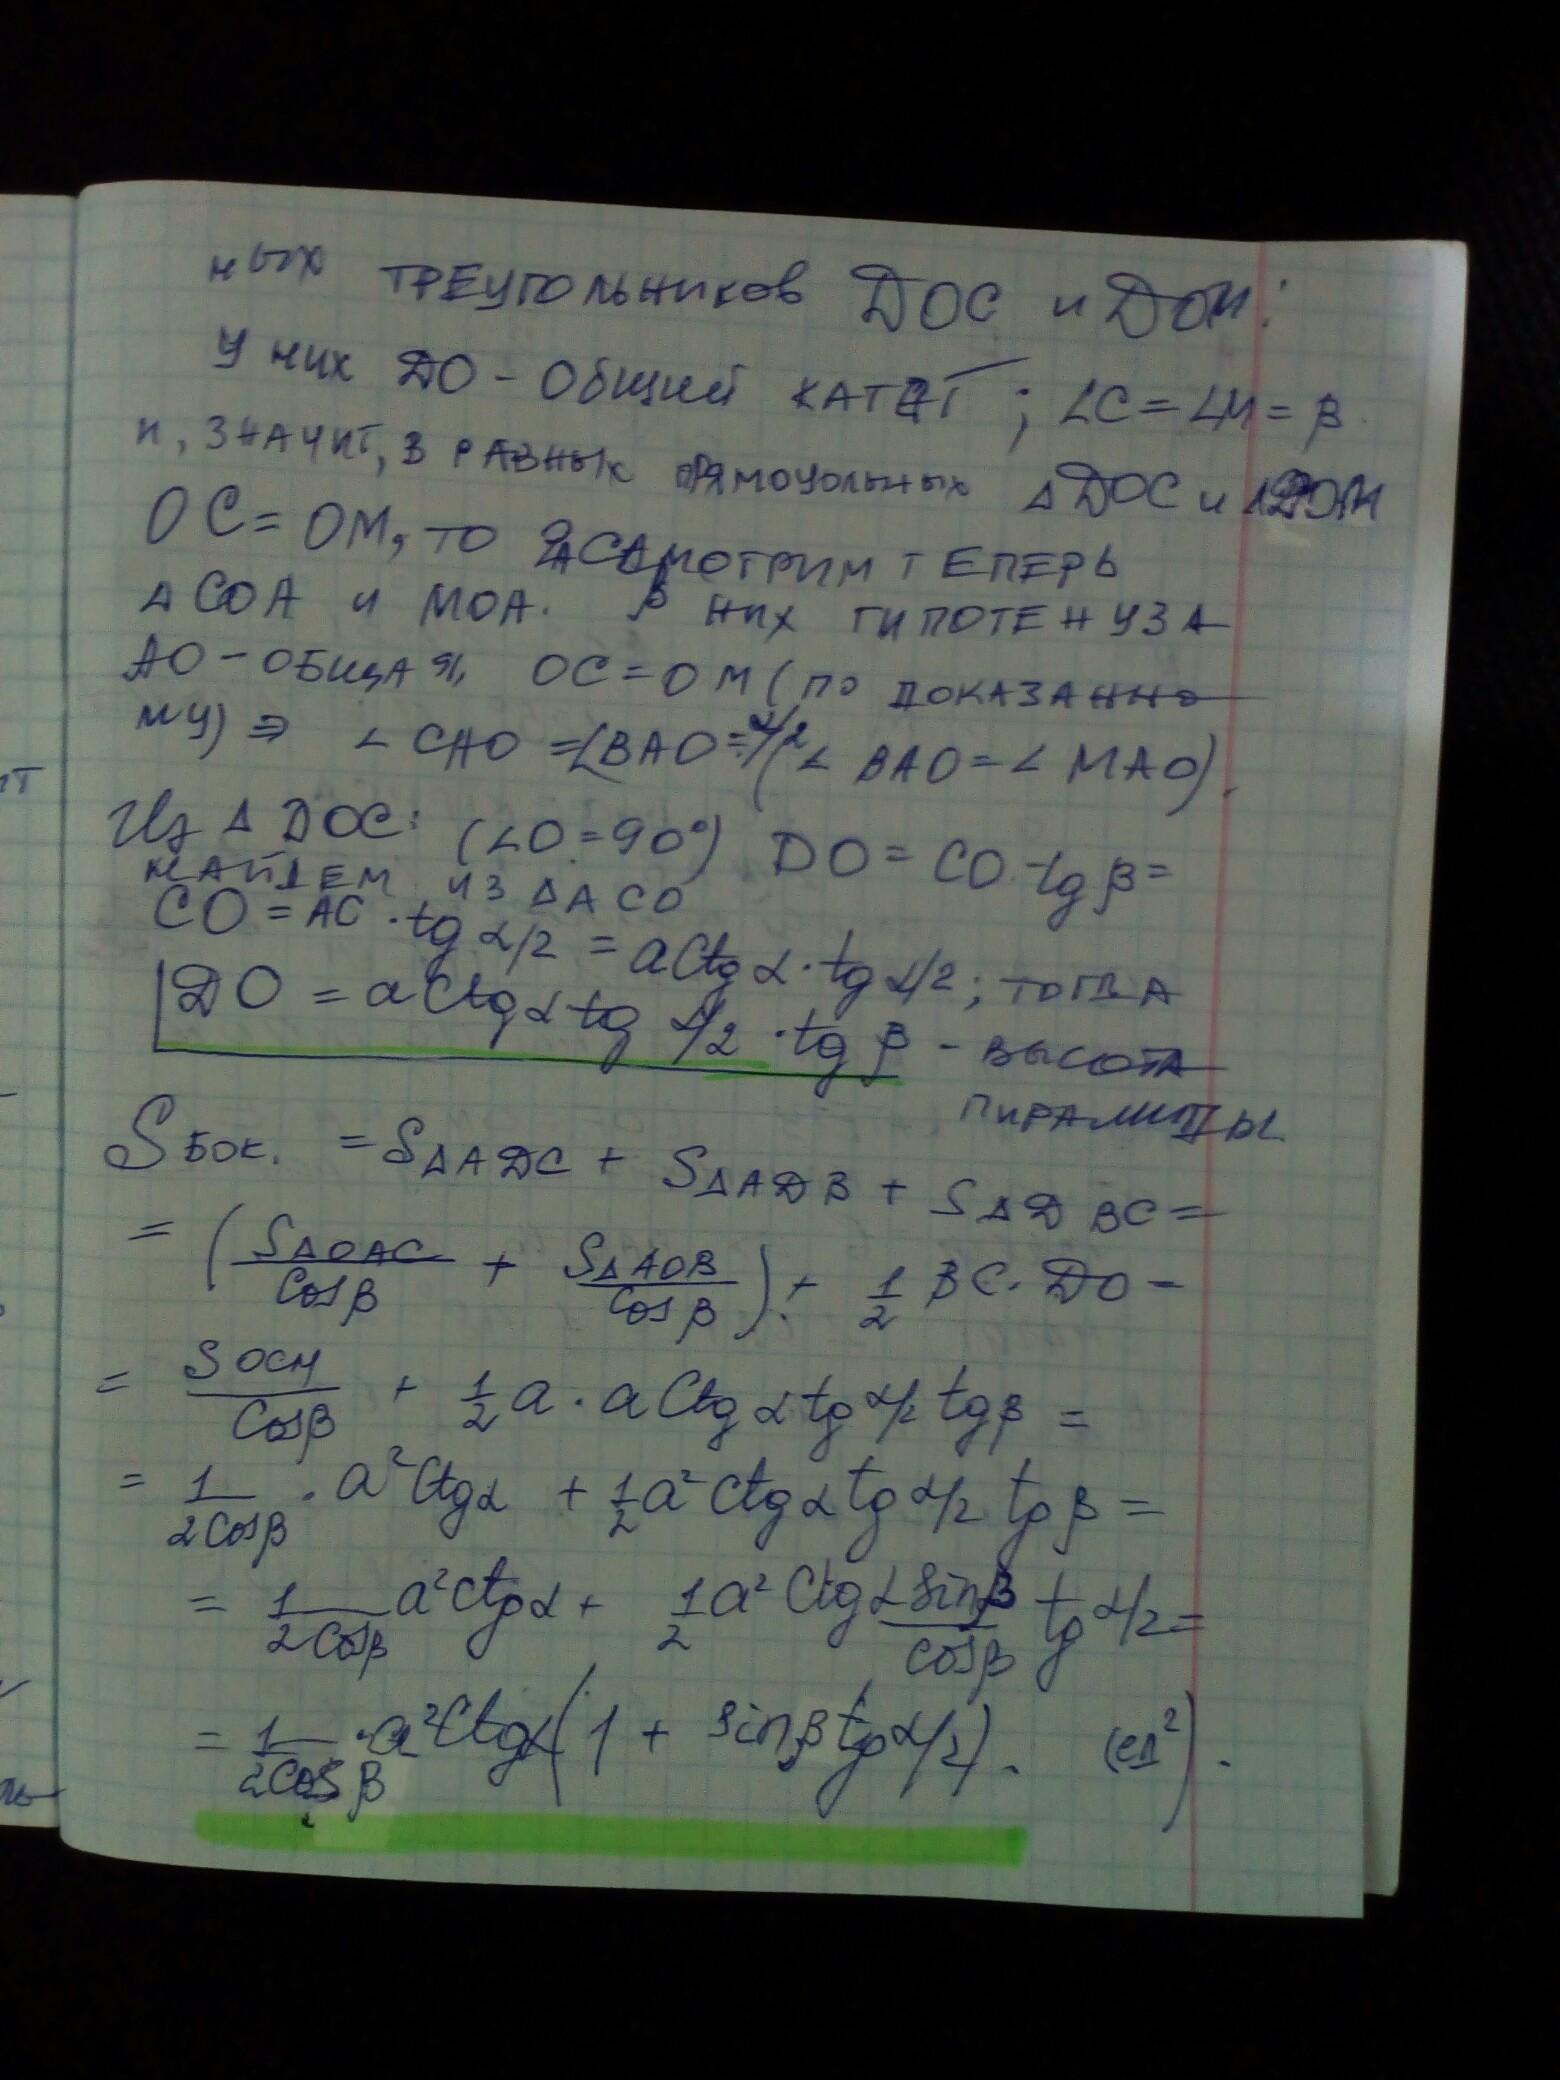 ных треугольников DOC и DOM:
У них DO - общий катет; ∠C = ∠M = β
и, значит, в равных прямоугольных ΔDOC и ΔDOM
OC = OM, то рассмотрим теперь
Δ COA и MOA. В них гипотенуза
AO - общая, OC = OM (по доказанно
му) ⇒ ∠ CAO = ∠BAO = α/2 (∠ BAO = ∠ MAO).
Из Δ DOC: (∠O = 90°) DO = CO · tg β =
найдем из ΔACO
CO = AC · tg α/2 = a ctg α · tg α/2; тогда
DO = a ctg α tg α/2 · tg β - высота
пирамиды
S бок. = SΔADC + SΔADB + SΔDBC =
= (SΔOAC/cosβ + SΔAOB/cosβ) + 1/2 BC · DO =
= S осн/cosβ + 1/2 a · a ctg α tg α/2 tg β =
= 1/2cosβ · a² ctg α + 1/2 a² ctg α tg α/2 tg β =
= 1/2cosβ a² ctg α + 1/2 a² ctg α sinβ/cosβ tg α/2 =
= 1/2cosβ · a² ctg α (1 + sinβ tg α/2). (ед²).